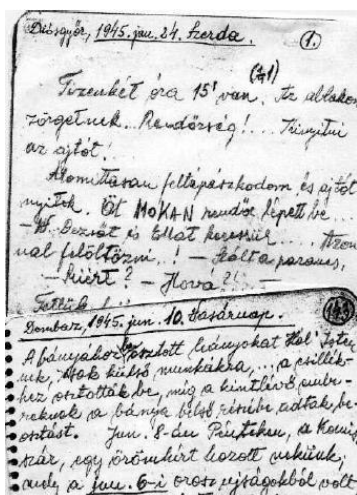 Diósgyőr, 1945. jan. 24. Szerda. 1.
(¼1)
Tizenkét óra 15' van. Az ablakon
zörgetnek. Rendőrség!... Kinyitni
az ajtót!
Álomittasan feltápászkodom és ajtót
nyitok. Öt MOKAN rendőr lépett be...
és Ellát keressük.... Azon
nal felöltözni..! - Szólt a parancs,
- Miért? - Hová?
Dombasz, 1945. jun. 10. Vasárnap.
A bányához beosztott leányokat Hál' Isten
nek, csak külső munkákra, ... a csillék-
hez osztották be, míg a kintlévő embe-
reknek a bánya belső részibe adtak be-
osztást. Jun. 8-án Pénteken, a Komis
szár, egy örömhírt hozott nekünk,
a jun. 6-i orosz ujságokból volt